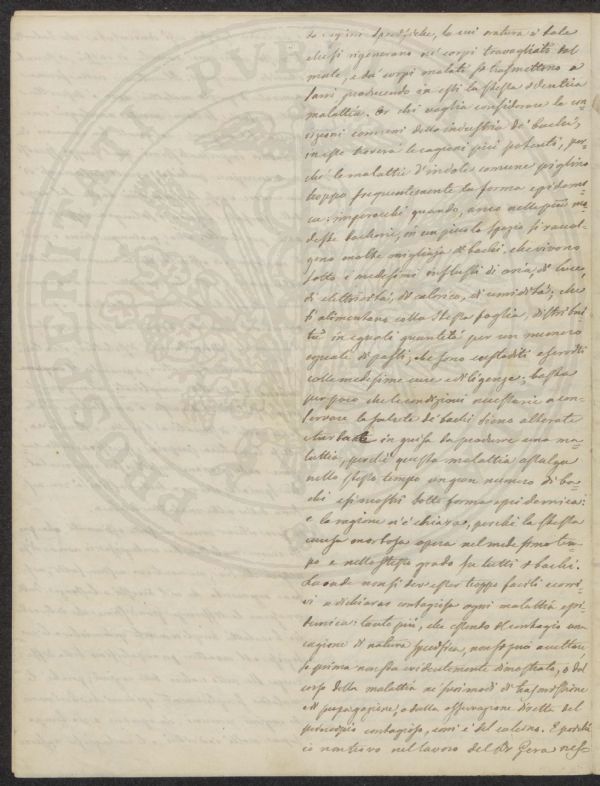 da cagioni specifiche, la cui natura è tale
che si rigenerano ne' corpi travagliati dal
male, e da' corpi malati si trasmettono a
sani producendo in essi la stessa identica
malattia. Or chi voglia considerare le con-
dizioni comuni della industria de' bachi,
in esse troverà le cagioni più potenti, per-
chè le malattie d'indole comune piglino
troppo frequentemente la forma epidemi-
ca: imperocchè quando, anco nelle più mo-
deste bacherie, in un piccolo spazio si raccol-
gono molte migliaja di bachi, che vivono
sotto i medesimi influssi di aria, di luce,
di elettricità, di calorico, di umidità; che
si alimentano colla stessa foglia, distribui-
ta in eguali quantità per un numero
eguale di pasti; che sono custoditi e serviti
colle medesime cure e diligenze; basta
per poco che le condizioni necessarie a con-
servare la salute de' bachi sieno alterate
e turbate in guisa da produrre una ma-
lattia, perchè questa malattia assalga
nello stesso tempo un gran numero di ba-
chi e si mostri sotto forma epidemica:
e la ragione n'è chiara, perchè la stessa
causa morbosa opera nel medesimo tem-
po e nello stesso grado su tutti i bachi.
Laonde non si dev'esser troppo facili e corri-
vi a dichiarar contagiosa ogni malattia epi-
demica: tanto più, che essendo il contagio una
cagione di natura specifica, non si può accettare,
se prima non sia evidentemente dimostrata, o dal
corso della malattia ne' suoi modi di trasmissione
e di propagazione, o dalla osservazione diretta del
principio contagioso, com'è del calcino. E poichè
io non trovo nel lavoro del Dr Gera nes-